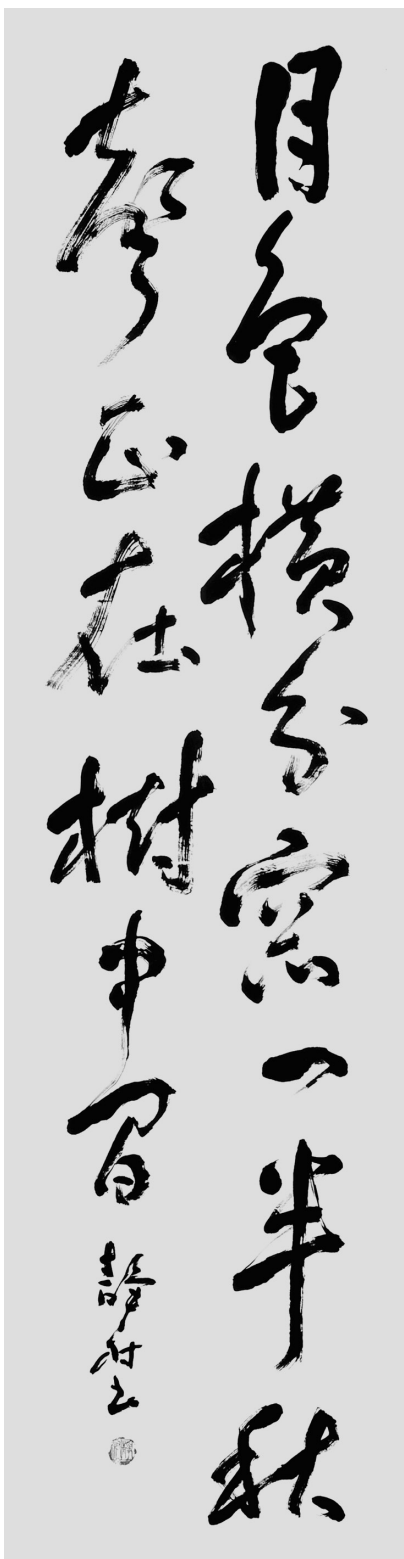 月色横分窓一半秋
聲正在樹中間
静村書